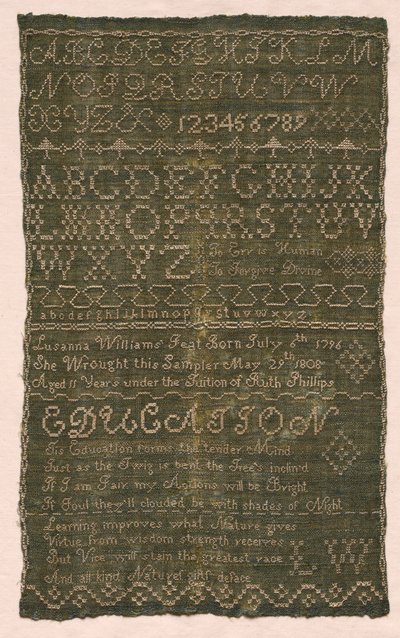 ABCDEFGHIKLM
NOPQRSTUVW
XYZ& 123456789
ABCDEFGHIJK
LMNOPQRSTUV
WXYZ
To Err is Human
To Forgive Divine
abcdefghijklmnopqrstuvwxyz
Lusanna Williams Feat Born July 6th 1796
She Wrought this Sampler May 29th 1808
Aged 11 Years under the Tuition of Ruth Phillips
EDUCATION
Tis Education forms the tender Mind
Just as the Twig is bent the Tree's inclin'd
If I am Fair my Actions will be Bright
If Foul they'll clouded be with shades of Night
Learning improves what Nature gives
Virtue from wisdom strength receives
But Vice will stain the greatest
And all kind Nature's gifts deface
LW